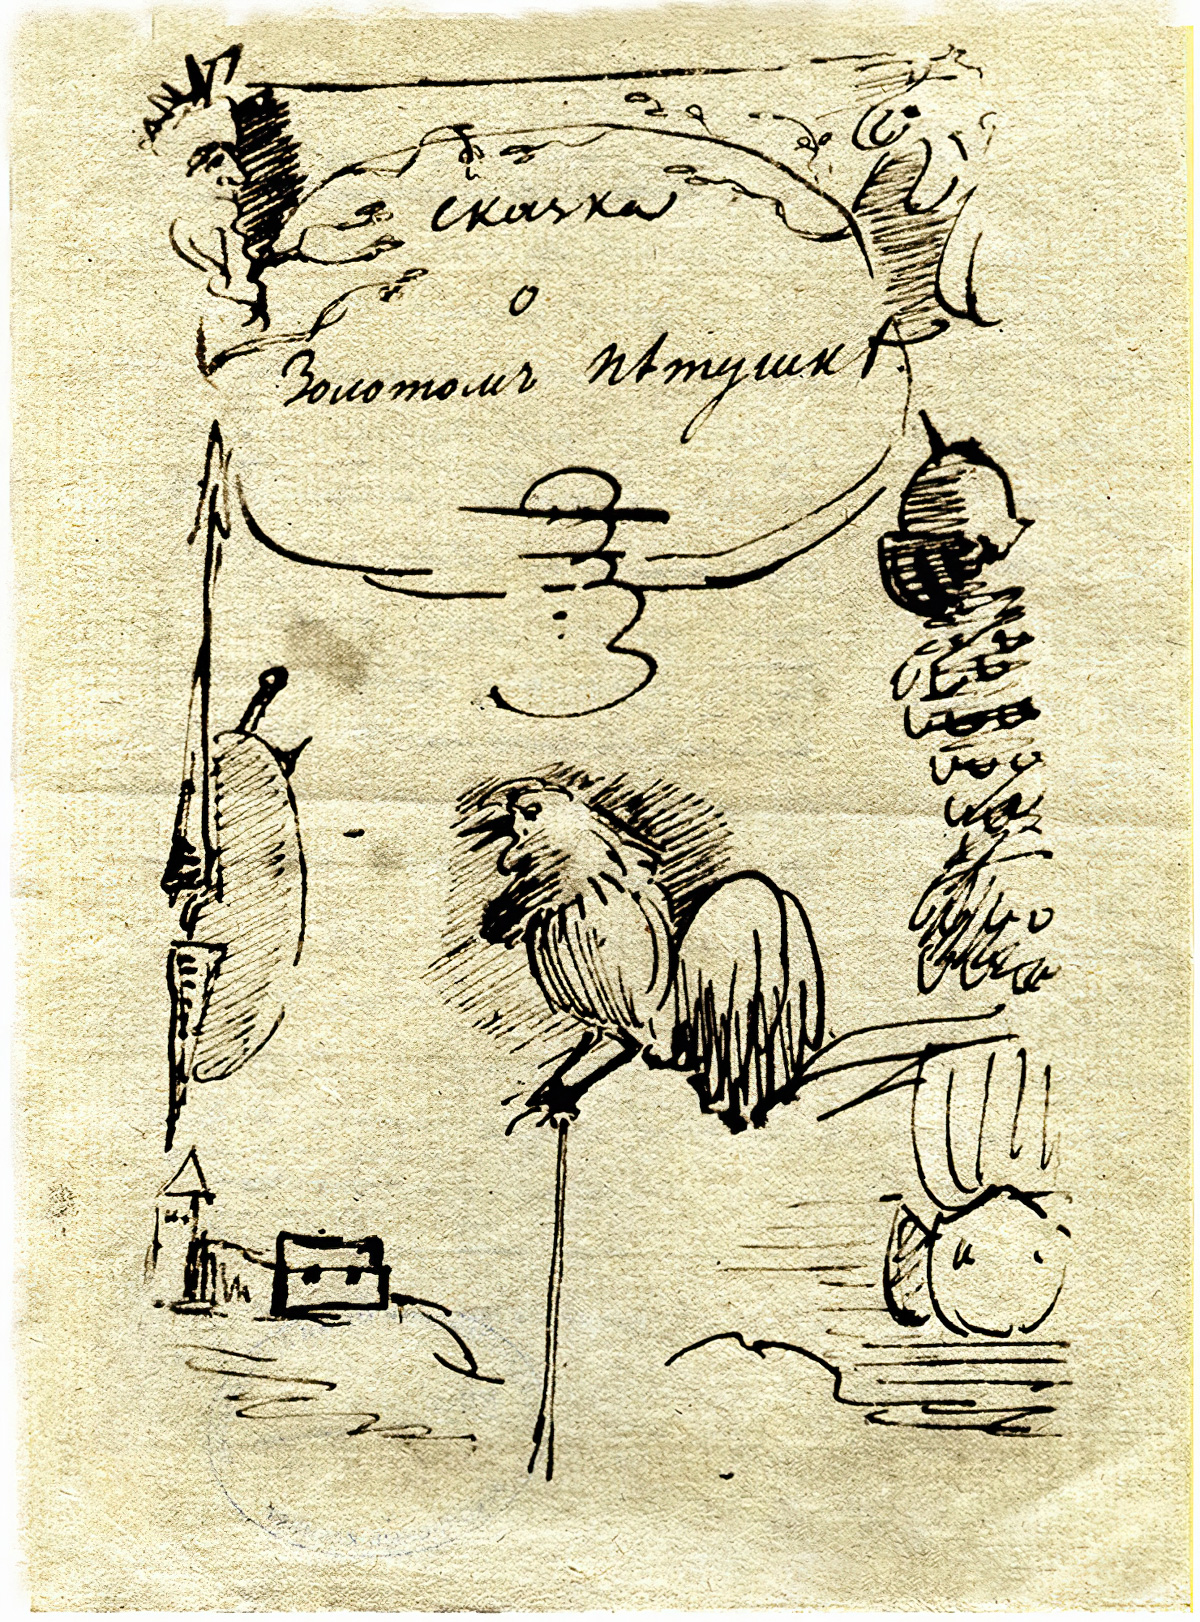 сказка
о
Золотомъ пѣтушкѣ.